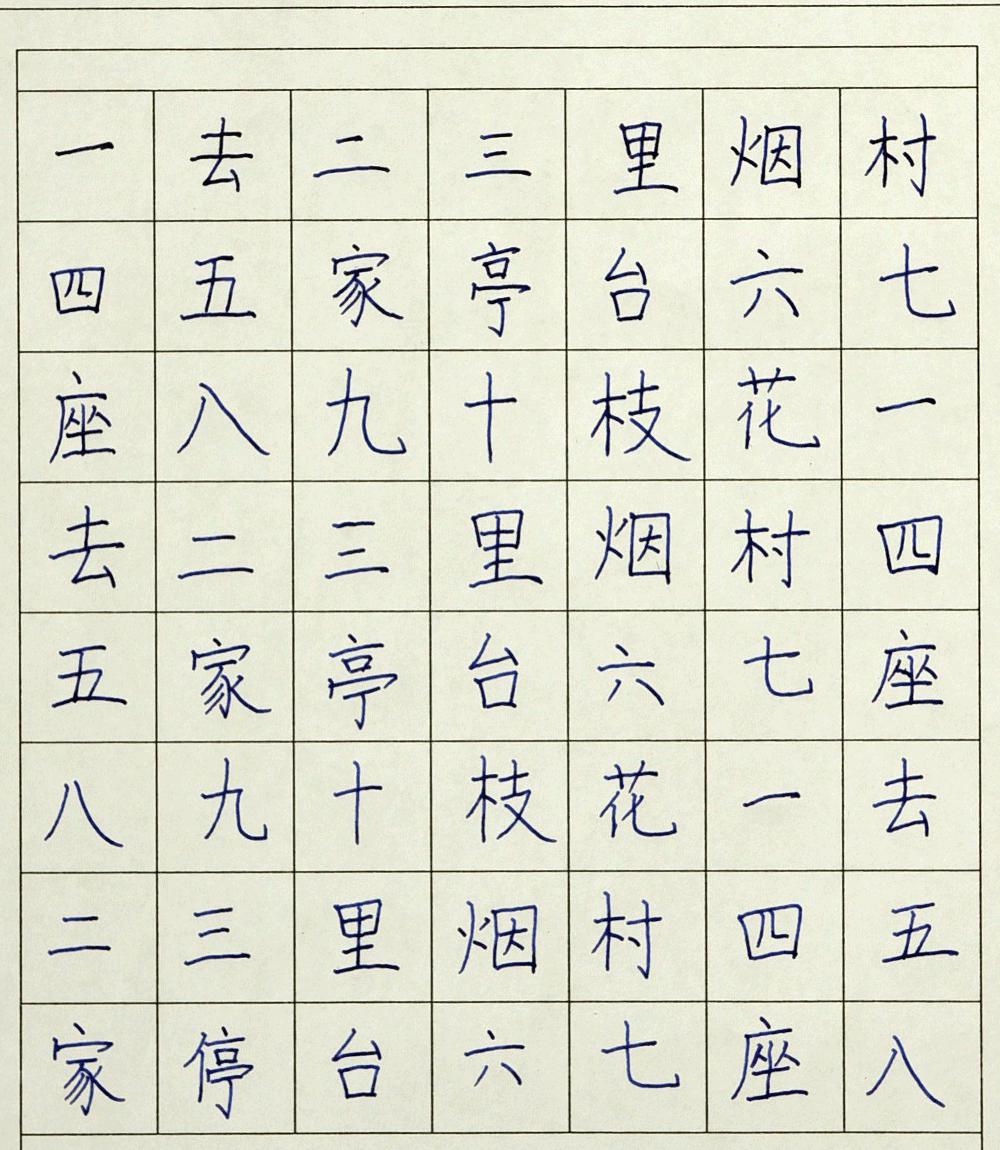 一去二三里烟村
四五家亭台六七
座八九十枝花一
去二三里烟村四
五家亭台六七座
八九十枝花一去
二三里烟村四五
家停台六七座八